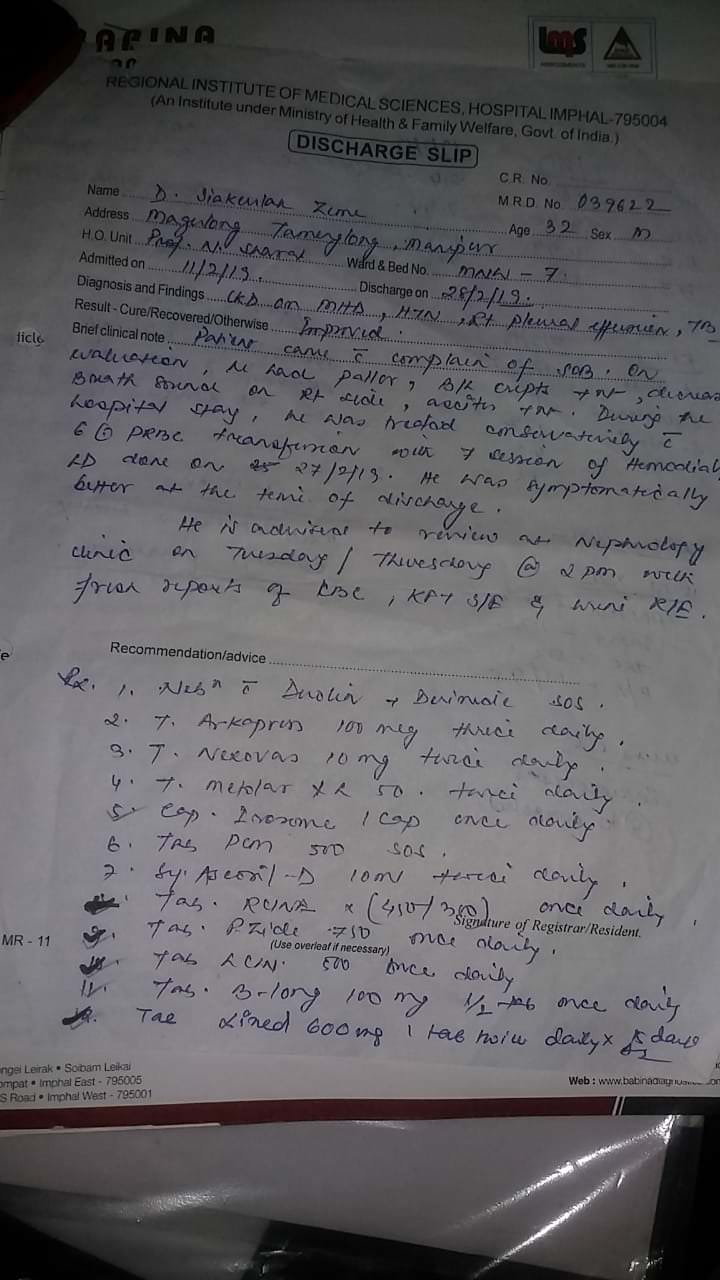 BABINA
REGIONAL INSTITUTE OF MEDICAL SCIENCES, HOSPITAL IMPHAL-795004
(An Institute under Ministry of Health & Family Welfare, Govt. of India.)
DISCHARGE SLIP
C.R. No.
M.R.D. No. 039622
Name D. Siakculan Zeme
Age 32 Sex M
Address Magulong Tamenglong, Manipur
H.O. Unit Prof. N. Sharat Ward & Bed No. MNW - 7
Admitted on 11/2/19. Discharge on 28/2/19.
Diagnosis and Findings CKD on MHD, HTN, Rt pleural effusion, TB
Result - Cure/Recovered/Otherwise Improved.
ticle
Brief clinical note: Patient came c̄ complain of SOB. On
evaluation, he had pallor, B/L crepts +nt, decreas
Breath sound on Rt side, ascites +nt. During the
hospital stay, he was treated conservatively c̄
6 PRBC transfusion with 7 session of Hemodial
LD done on 27/2/19. He was symptomatically
better at the time of discharge.
He is advised to review at Nephrology
clinic on Tuesday / Thursday @ 2 pm with
reports of CBC, KFT S/E & urine R/E.
Recommendation/advice
Rx. 1. Nebn c̄ Duolin + SOS.
2. T. Arkapress 100 mcg thrice daily.
3. T. Nexovas 10 mg daily.
4. T. Metolar XR 50. daily.
5. Cap. 1 cap once daily
6. Tab PCM 500 SOS.
7. Sy. Ascoril-D 10ml daily.
Tab. RCINEX (450/300) once daily.
Signature of Registrar/Resident.
9. Tab. P.Zide 750 once daily.
(Use overleaf if necessary)
MR - 11
Tab LCIN 500 once daily
11. Tab. B-long 100 mg 1/2 tab once daily
Tab Lined 600 mg 1 tab twice daily x days
ngei Leirak • Soibam Leikai
ompat • Imphal East - 795005
S Road • Imphal West - 795001
Web : www.babinadiagnos